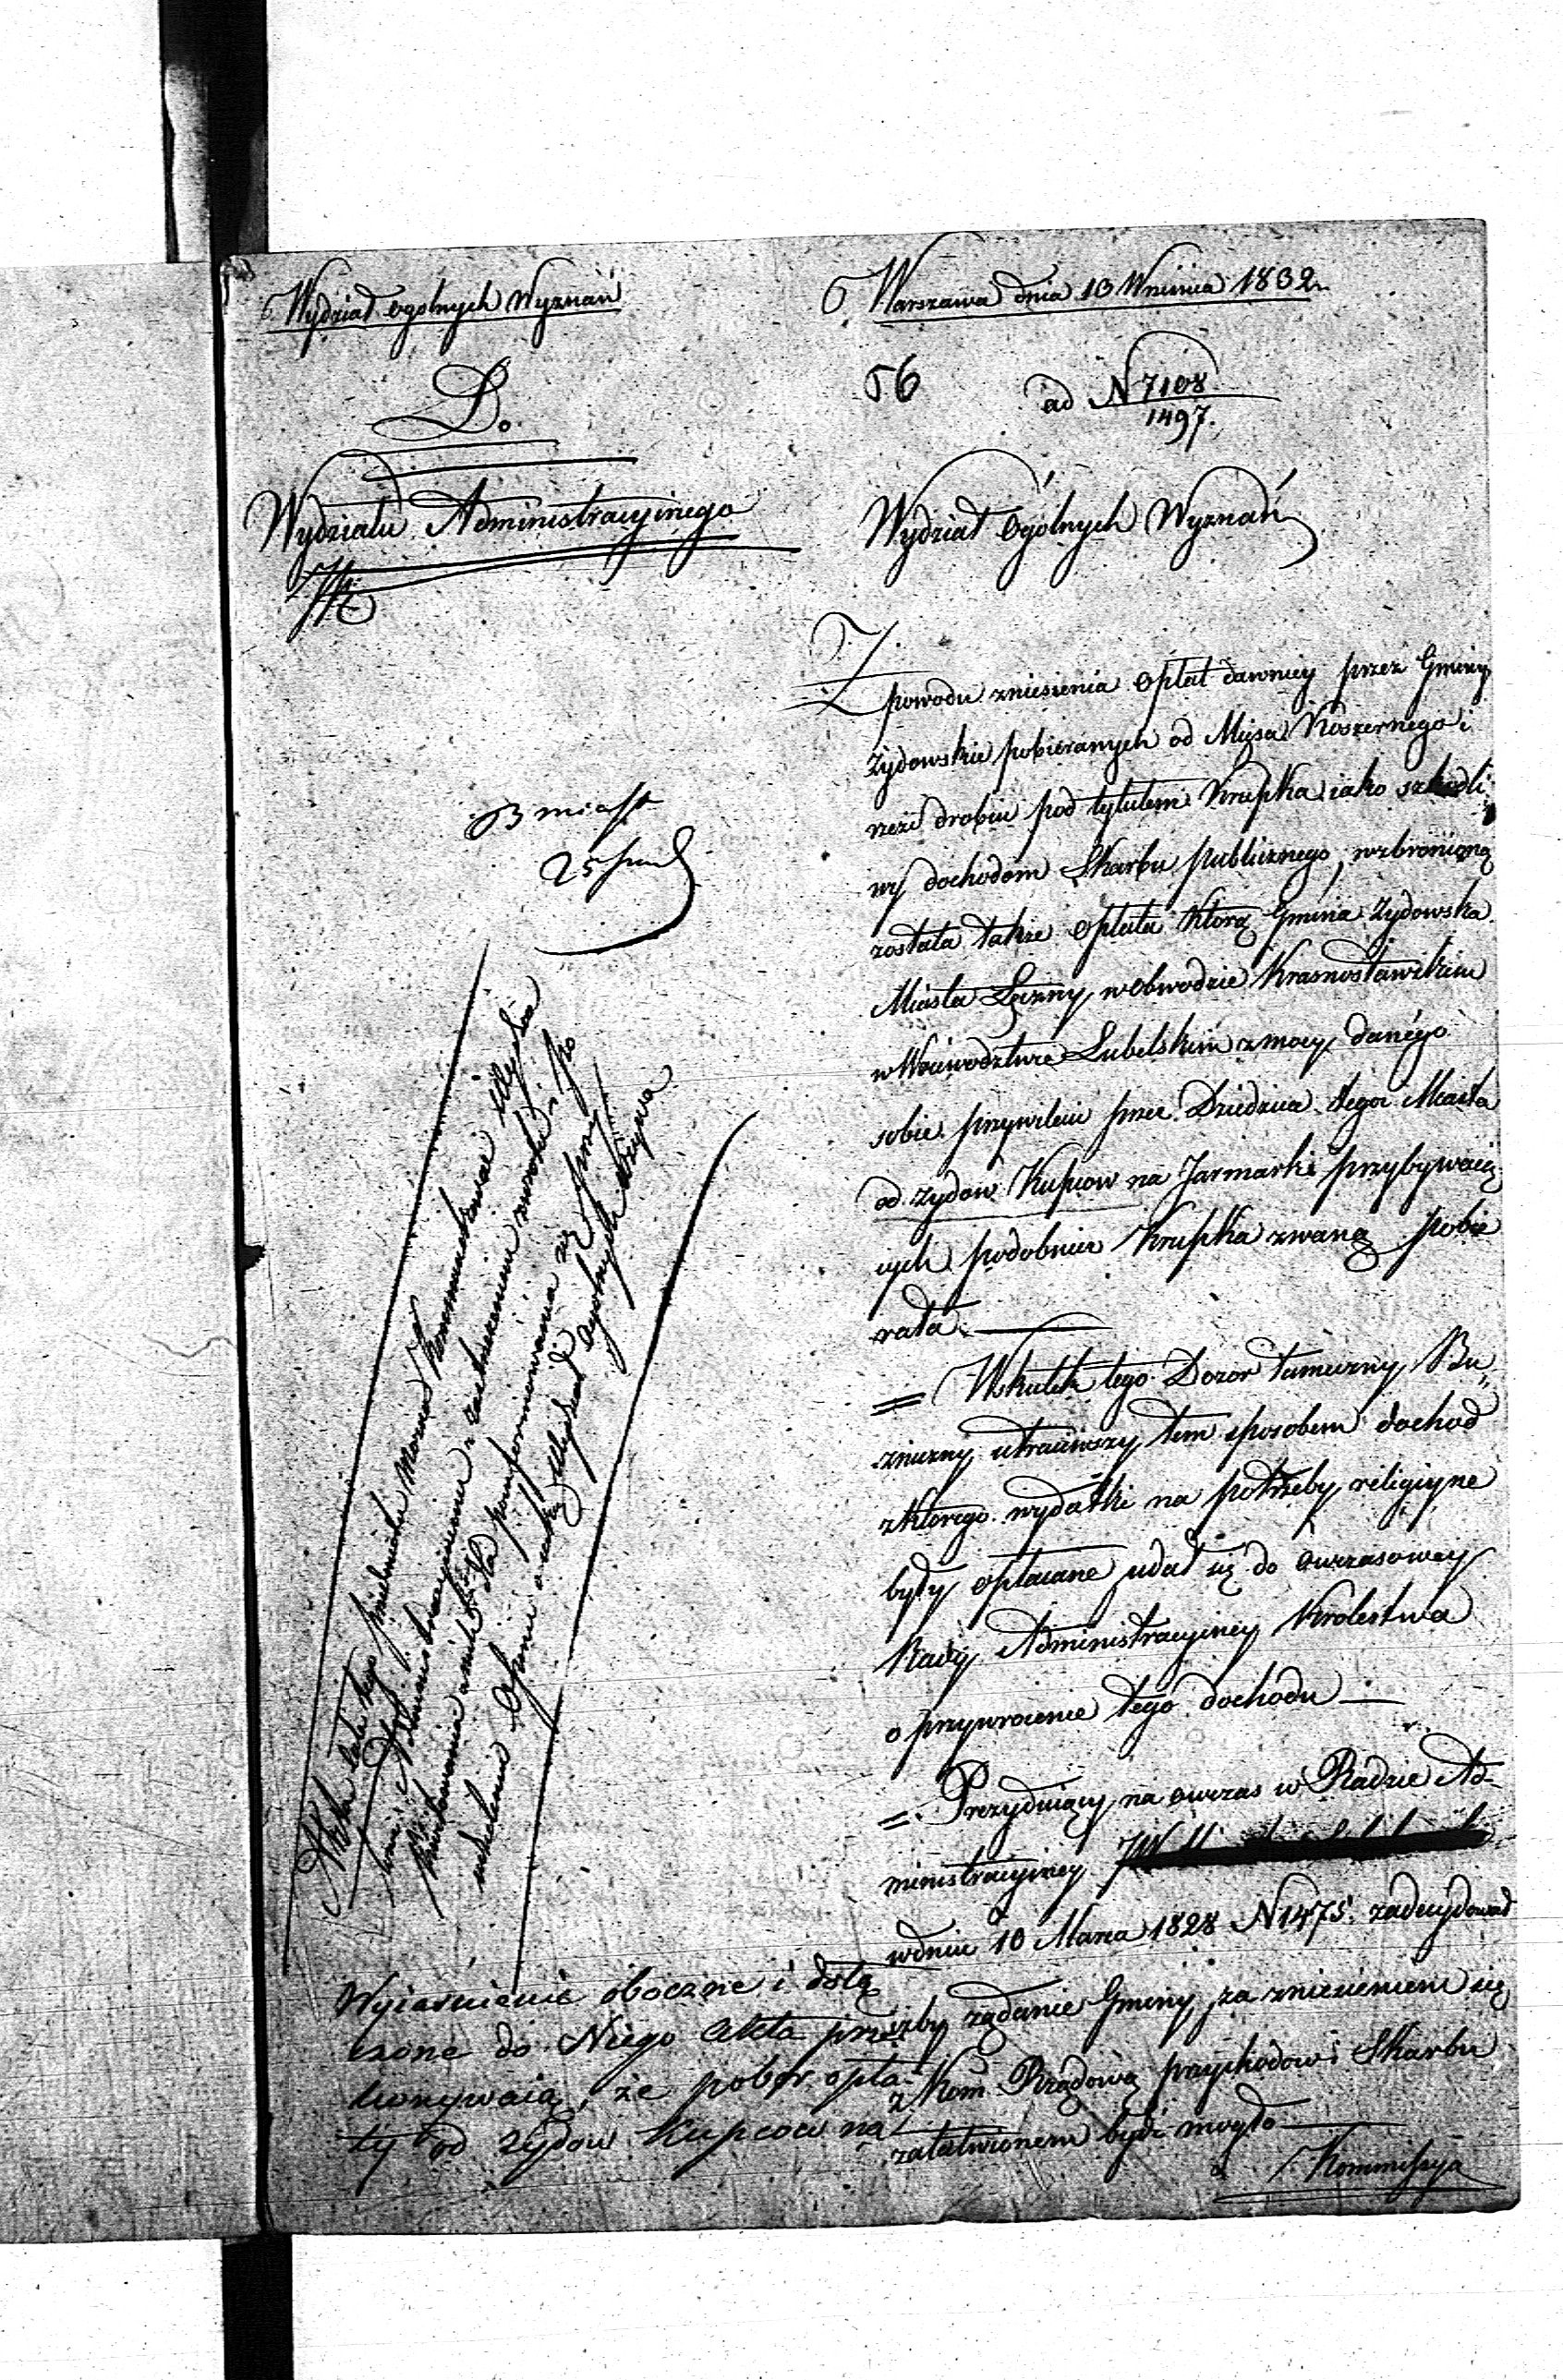 Wydział Ogolnych Wyznań
Warszawa dnia 10 Września 1832.
56
ad N 7108
1497.
Do
Wydziału Administracyinego
Wydział Ogólnych Wyznań
Z powodu zniesienia opłat dawniey przez Gminy
Żydowskie pobieranych od Mięsa Koszernego i
rzezi drobiu pod tytułem Krupka iako szkodli
wy dochodom Skarbu publicznego, wzbronioną
została także opłata którą Gmina Żydowska
Miasta Łęczny w Obwodzie Krasnostawskim
w Woiewodztwie Lubelskim z mocy danégo
sobie przywileiu przez Dziedzica tego Miasta
od Żydow Kupcow na Jarmarki przybywaią
cych podobnie Krupka zwaną pobie
rała.
= Wskutek tego Dozor tameczny Bu„
zniczny utraciwszy tem sposobem dochod
z ktorego wydatki na potrzeby religiyne
były opłacane udał się do owczasowey
Rady Administracyiney Krolestwa
o przywrocenie tego dochodu
= Prezyduiący na owczas w Radzie Ad-
ministracyiney
w dniu 10 Marca 1828 N 1475. zadecydował
ażby żądanie Gminy za zniesieniem się
z Kom. Rządową przychodow i Skarbu
załatwionem bydź mogło
Kommissya
B miast
25
Akta
można Kommunikować
Administracyinemu z zastrzeżeniem zwrotu i po
Wydział Ogolnych
Wyiaśnienie oboczne i dołą
czone do Niego Akta prze
konywaią, że pobor opła-
ty od Żydow Kupcow na